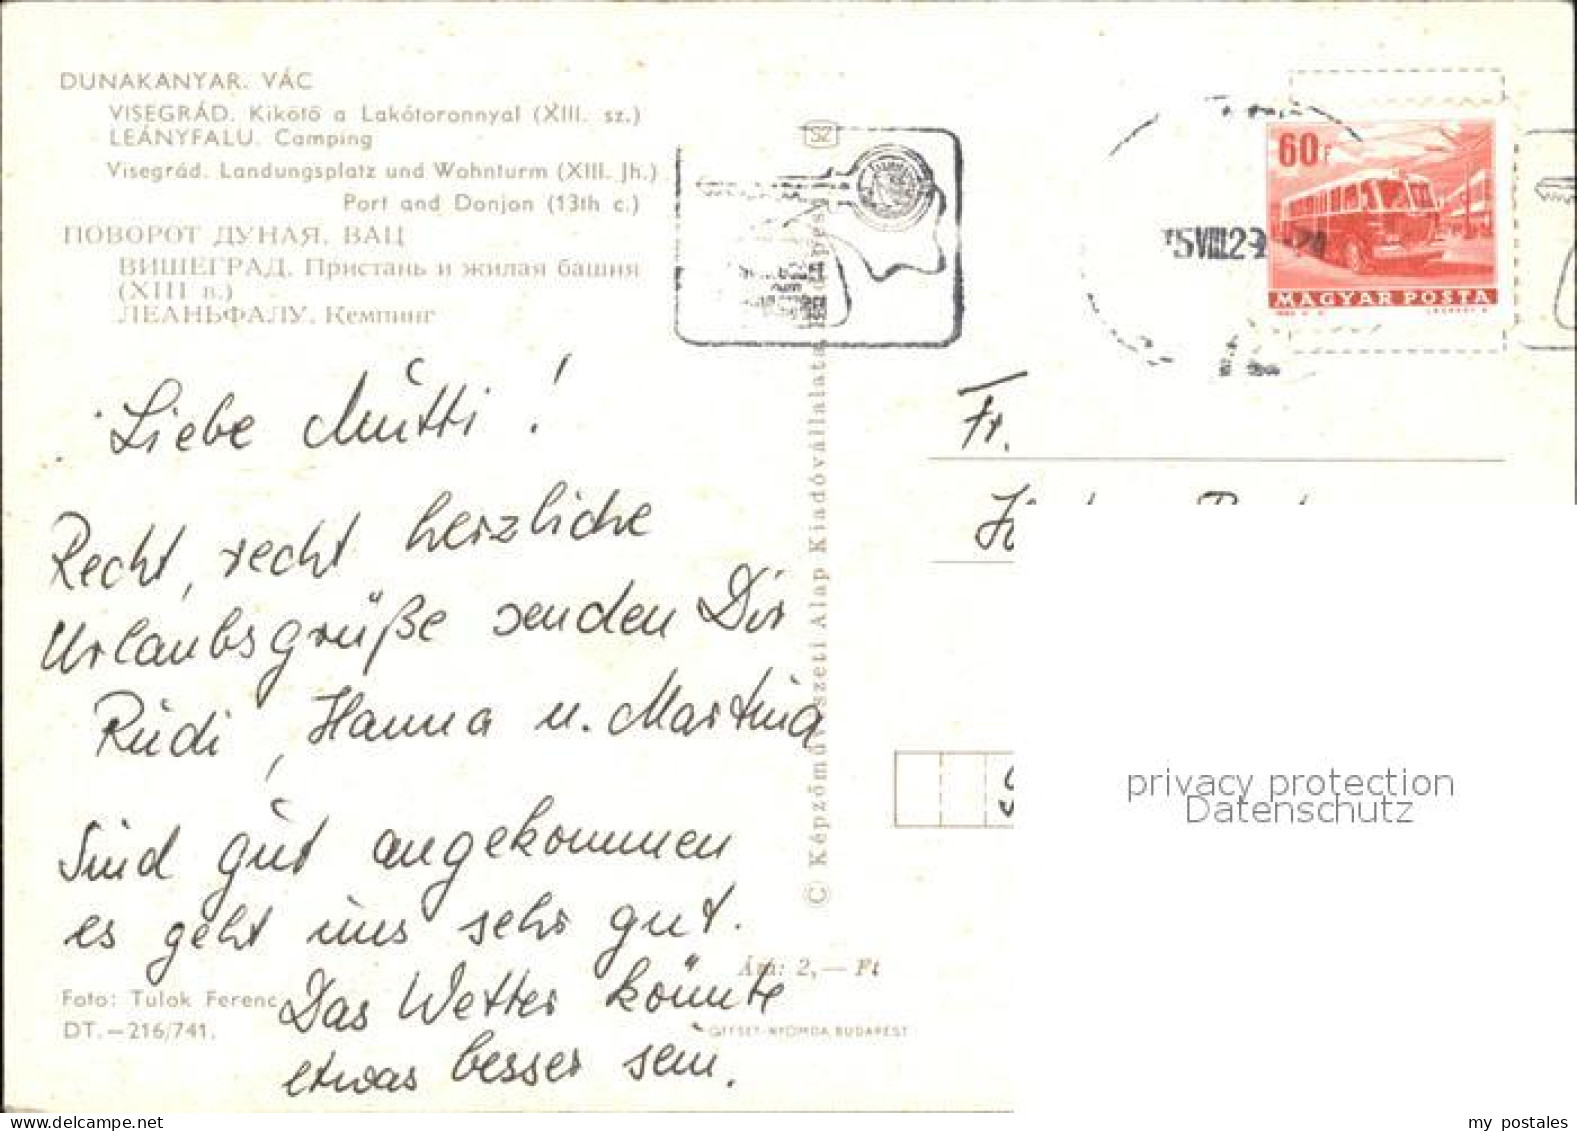 DUNAKANYAR. VÁC
VISEGRÁD. Kikötő a Lakótoronnyal (XIII. sz.)
LEÁNYFALU. Camping
Visegrád. Landungsplatz und Wohnturm (XIII. Jh.)
Port and Donjon (13th c.)
ПОВОРОТ ДУНАЯ. ВАЦ
ВИШЕГРАД. Пристань и жилая башня
(XIII в.)
ЛЕАНЬФАЛУ. Кемпинг
SZ
60f
MAGYAR POSTA
Liebe Mutti!
Recht, recht herzliche
Urlaubsgrüße senden Dir
Rudi, Hanna u. Martina
Sind gut angekommen
es geht uns sehr gut.
Das Wetter könnte
etwas besser sein.
Fr.
© Képzőművészeti Alap Kiadóvállalata, Budapest
Ára: 2,— Ft
Foto: Tulok Ferenc
DT.—216/741.
OFFSET-NYOMDA, BUDAPEST
privacy protection
Datenschutz
my postales